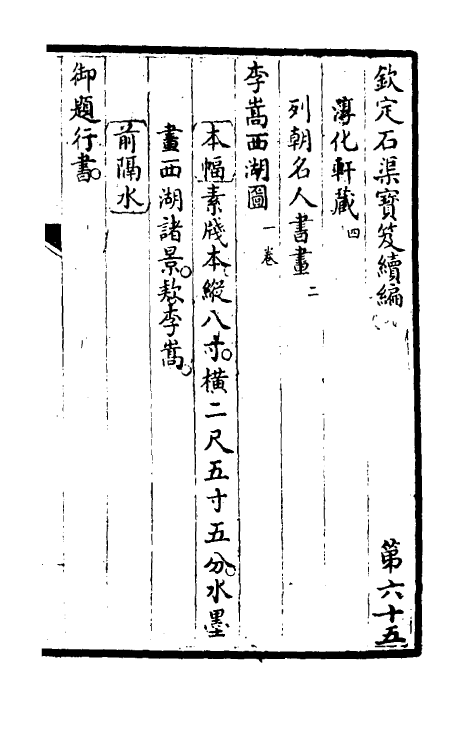 欽定石渠寶笈續編 第六十五
淳化軒藏 四
列朝名人書畫 二
李嵩西湖圖 一卷
本幅素牋本縱八寸。橫二尺五寸五分。水墨
畫西湖諸景。欵李嵩。
前隔水
御題行書。